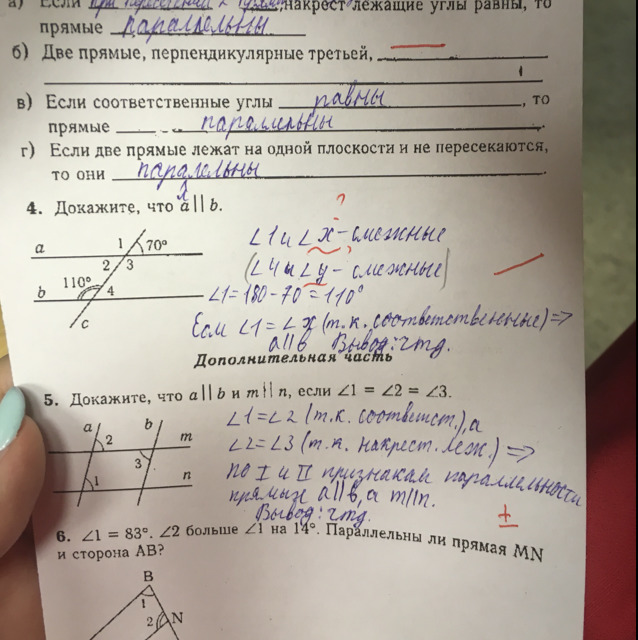 а) Если при пересечении 2 прямых, накрест лежащие углы равны, то
прямые параллельны
б) Две прямые, перпендикулярные третьей,
в) Если соответственные углы равны, то
прямые параллельны.
г) Если две прямые лежат на одной плоскости и не пересекаются,
то они паралельны
л
4. Докажите, что a || b.
?
a 1 70°
2 3
b 110° 4
c
∠1 и ∠x - смежные
?
(∠4 и ∠y - смежные)
∠1=180-70°=110°
Если ∠1=∠x (т.к. соответственные) =>
a||b Вывод: чтд.
Дополнительная часть
5. Докажите, что a || b и m || n, если ∠1 = ∠2 = ∠3.
a b
2 m
3
1 n
∠1=∠2 (т.к. соответст.), а
∠2=∠3 (т.к. накрест. леж.) =>
по I и II признакам параллельности
прямых a||b, а m||n.
Вывод: чтд.
±
6. ∠1 = 83°. ∠2 больше ∠1 на 14°. Параллельны ли прямая MN
и сторона AB?
B
1
2 N